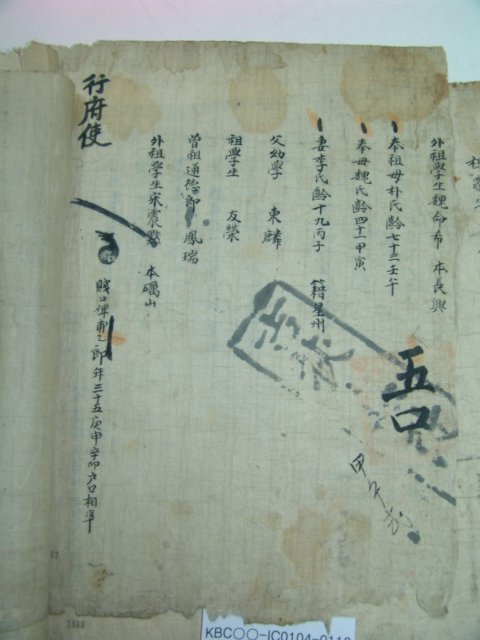 外祖學生魏命 本長興
奉祖母朴氏齡七十三壬午
奉母魏氏齡四十一甲寅
妻李氏齡十九丙子 籍星州
父幼學 東麟
祖學生 友榮
曾祖通德郎 鳳瑞
外祖學生宋震 本礪山
賤口婢 年三十五庚申辛卯戶口相準
行府使
五口
KBC○○-IC0104-0118